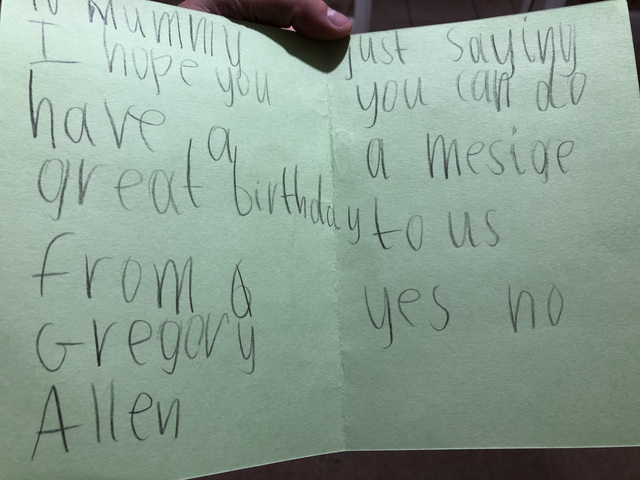 to Mummy
I hope you
have a
great birthday
from
Gregory
Allen
just saying
you can do
a mesige
to us
yes no